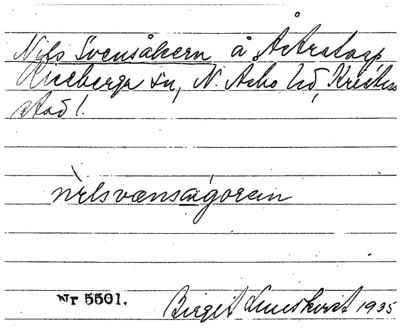 Nils Svensåkern å Åstratorp
Kneberga sn, N. Åsbo hd, Kristian
stad l.
nìlsvænsågoræin
Nr 5501. Birgit Lundkvist 1935